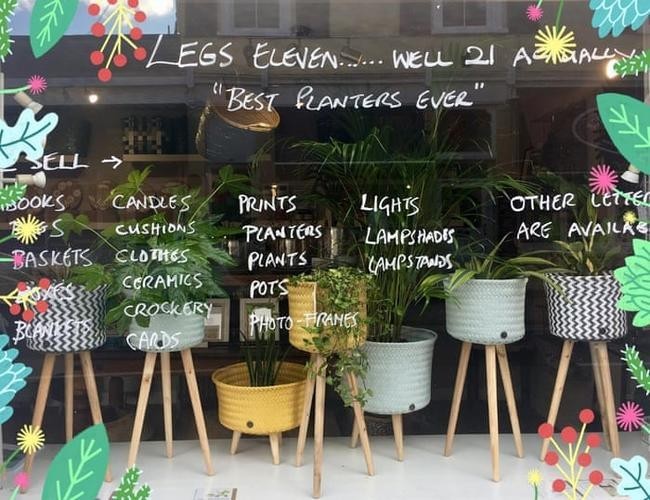 LEGS ELEVEN...... WELL 21 ACTUALLY
"BEST PLANTERS EVER"
SELL →
BOOKS
BAGS
BASKETS
BOXES
BLANKETS
CANDLES
CUSHIONS
CLOTHES
CERAMICS
CROCKERY
CARDS
PRINTS
PLANTERS
PLANTS
POTS
PHOTO-FRAMES
LIGHTS
LAMPSHADES
LAMPSTANDS
OTHER LETTE
ARE AVAILAB